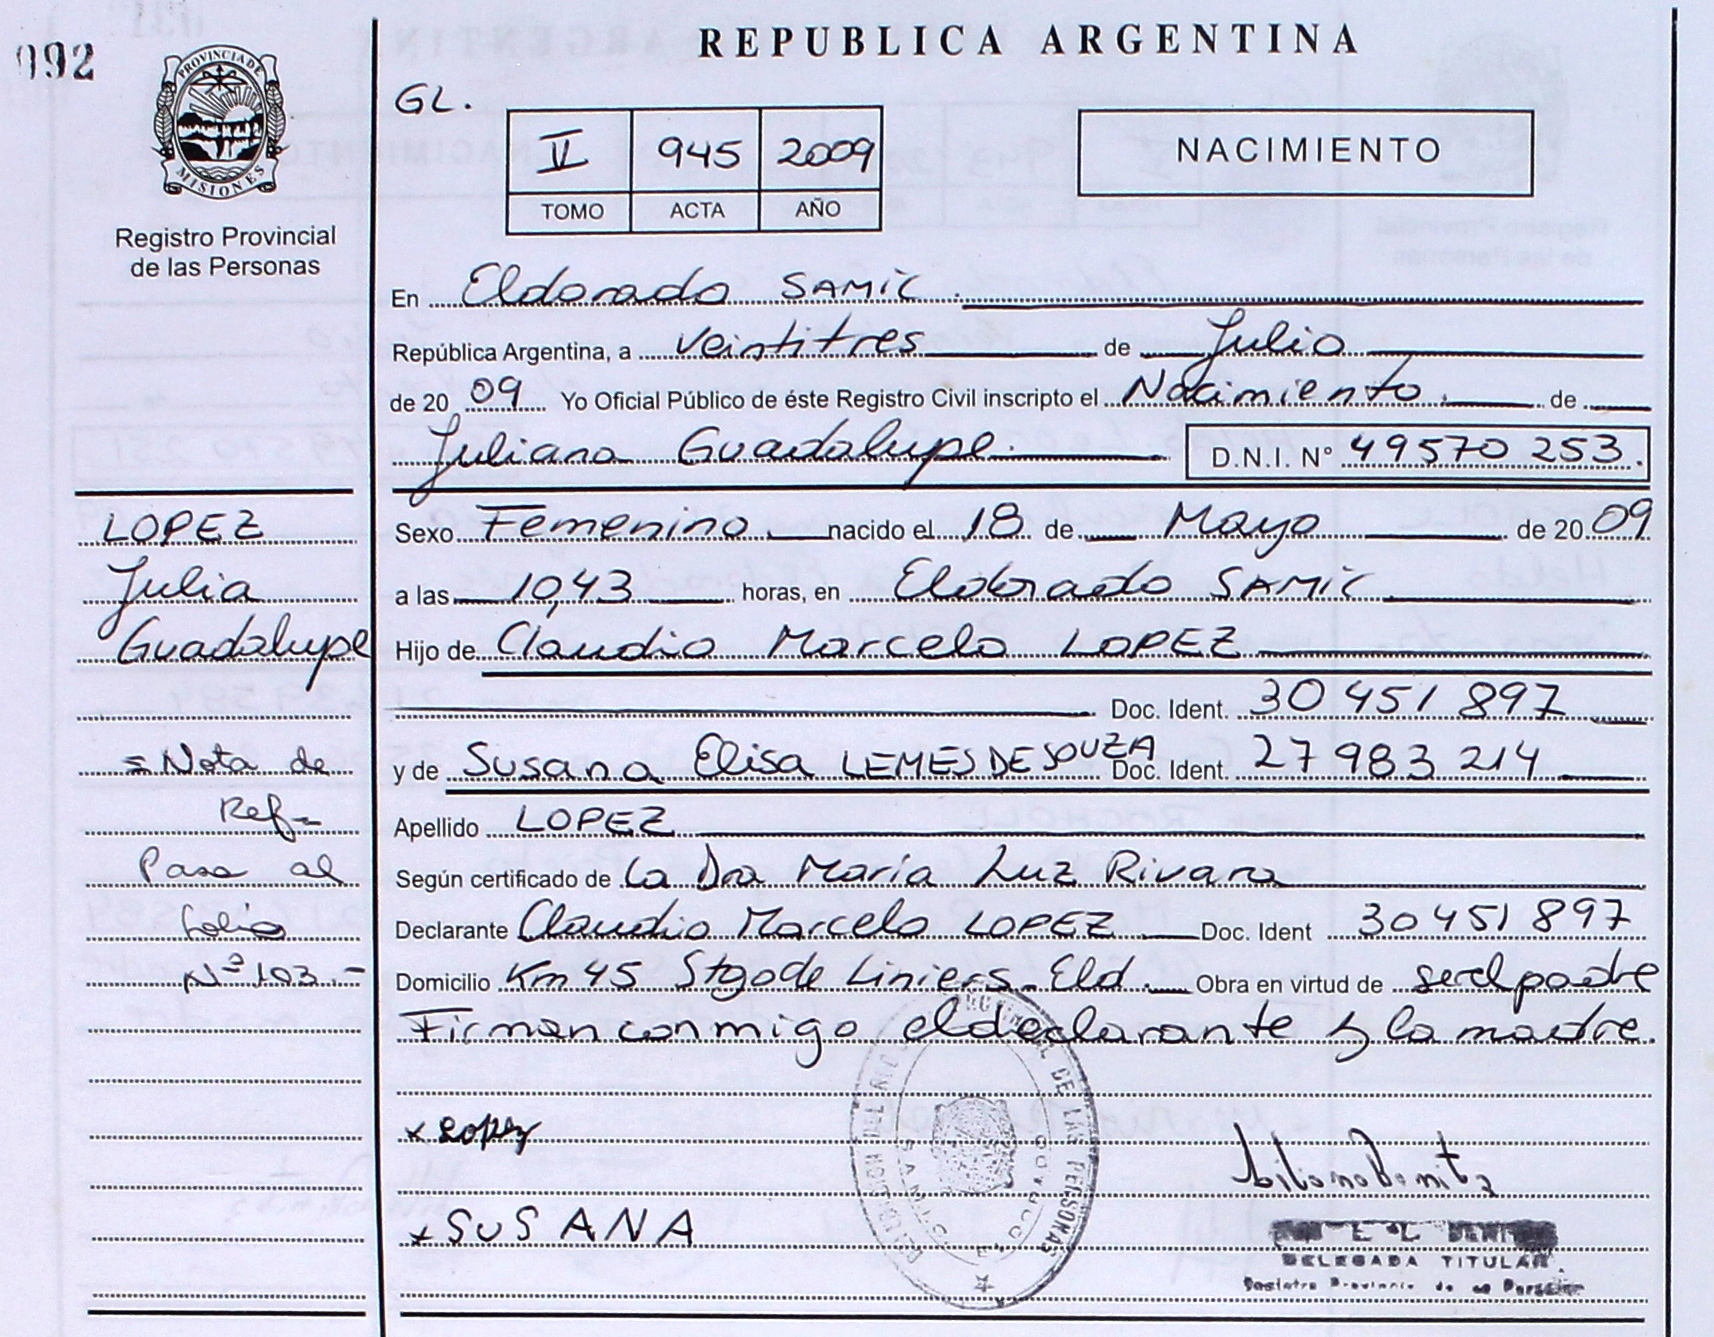 092
PROVINCIA DE
MISIONES
Registro Provincial
de las Personas
REPUBLICA ARGENTINA
GL.
V 945 2009
TOMO ACTA AÑO
NACIMIENTO
En Eldorado SAMIC.
República Argentina, a veintitres de Julio
de 20 09 Yo Oficial Público de éste Registro Civil inscripto el Nacimiento. de
Juliana Guadalupe. D.N.I. Nº 49570 253.
Sexo Femenino nacido el 18 de Mayo de 20 09
a las 10,43 horas, en Eldorado SAMIC
Hijo de Claudio Marcelo LOPEZ
Doc. Ident. 30 451 897
y de Susana Elisa LEMES DE SOUZA Doc. Ident. 27 983 214
Apellido LOPEZ
Según certificado de La Dra Maria Luz Rivara
Declarante Claudio Marcelo LOPEZ Doc. Ident 30 451 897
Domicilio Km 45 Stgo de Liniers. Eld. Obra en virtud de ser el padre
Firman conmigo el declarante y la madre.
LOPEZ
Julia
Guadalupe
=Nota de
Ref=
Pasa al
folio
Nº 103.-
x Lopez
x SUSANA
DE LAS PERSONAS
DELEGADA TITULAR